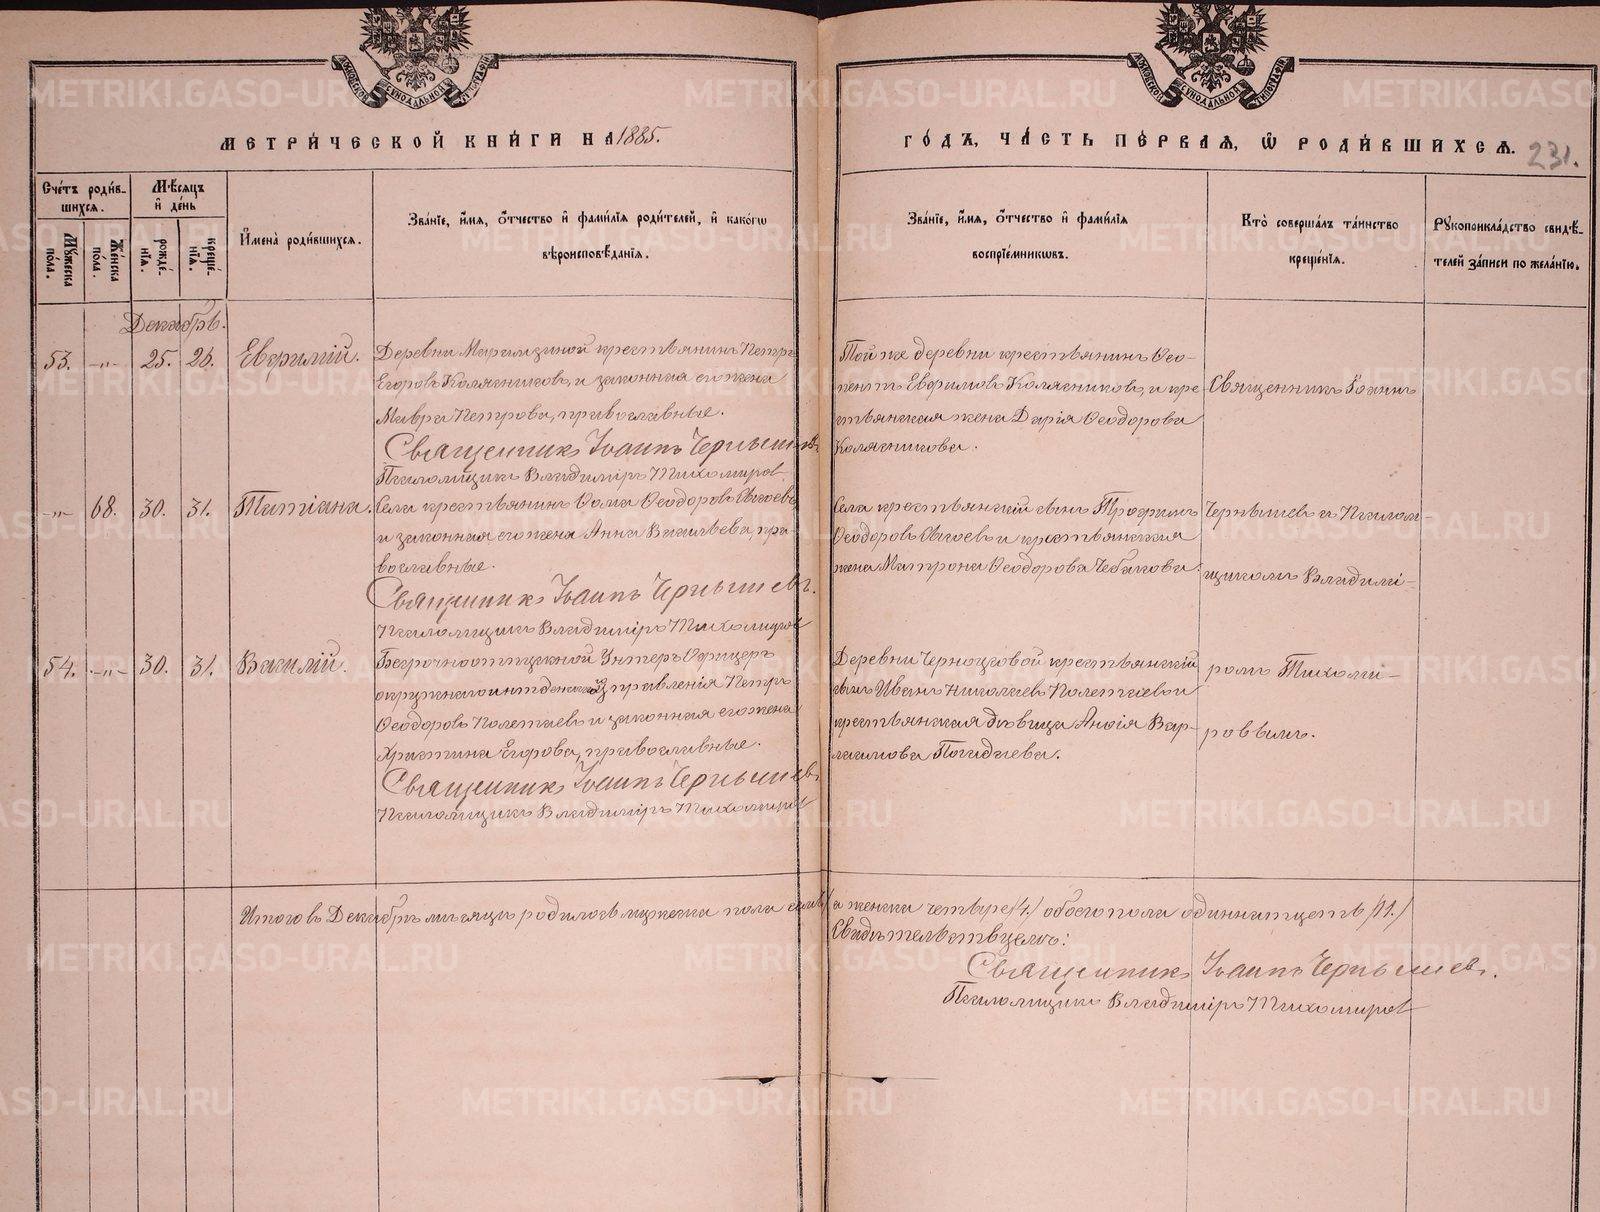 МЕТРИ́ЧЕСКОЙ КНИ́ГИ НА 1885.
ГО́ДЪ, ЧА́СТЬ ПЕ́РВАЯ, Ѿ РОДИ́ВШИХСѦ. 231.
Сче́тъ роди́в-
шихсѧ.
Мꙋжеска по́ла.
Же́нска по́ла.
Мѣ́сѧцъ и҆ де́нь
рожде́-
нїѧ.
креще́-
нїѧ.
И҆мена̀ роди́вшихсѧ.
Зва́нїе, и҆́мѧ, ѻ҆́тчество и҆ фами́лїѧ роди́телей, и҆ како́гѡ
вѣроисповѣ́данїѧ.
Зва́нїе, и҆́мѧ, ѻ҆́тчество и҆ фами́лїѧ
воспрїе́мникѡвъ.
Кто̀ соверша́лъ та́инство
креще́нїѧ.
Рꙋкоприкла́дство свидѣ́-
телей за́писи по жела́нїю.
Декабрь.
53. -„- 25. 26. Евфимій.
Деревни крестьянинъ Петръ
Егоровъ Колясниковъ, и законная его жена
Мавра Петрова, православные.
Священникъ Іоаннъ Чернышевъ
Псаломщикъ Владиміръ Тихомировъ
Той же деревни крестьянинъ Ѳео-
Евфимовъ Колясниковъ, и кре-
стьянская жена Дарія Ѳеодорова
Колясникова.
Священникъ Іоаннъ
-„- 68. 30. 31. Татіана.
Села крестьянинъ Ѳома Ѳеодоровъ
и законная его жена Анна Васильева, пра-
вославные.
Священникъ Іоаннъ Чернышевъ.
Псаломщикъ Владиміръ Тихомировъ
Села крестьянскій сынъ Трофимъ
Ѳеодоровъ и крестьянская
жена Матрона Ѳеодорова Чебакова.
Чернышевъ съ Псалом-
щикомъ Владимі-
54. -„- 30. 31. Василій.
Безсрочноотпускной Унтеръ Офицеръ
управленія Петръ
Ѳеодоровъ Полетаевъ и законная его жена
Христина Егорова, православные.
Священникъ Іоаннъ Чернышевъ
Псаломщикъ Владиміръ Тихомировъ
Деревни крестьянскій
сынъ Иванъ Николаевъ Полетаевъ и
крестьянская дѣвица Анисія Вар-
лаамова Погадаева.
ромъ Тихоми-
ровымъ.
Итого въ Декабрѣ мѣсяцѣ родилось мужеска пола семь
а женска четыре /4./ обоего пола одиннатцеть /11./
Свидѣтельствуемъ:
Священникъ Іоаннъ Чернышевъ.
Псаломщикъ Владиміръ Тихомировъ